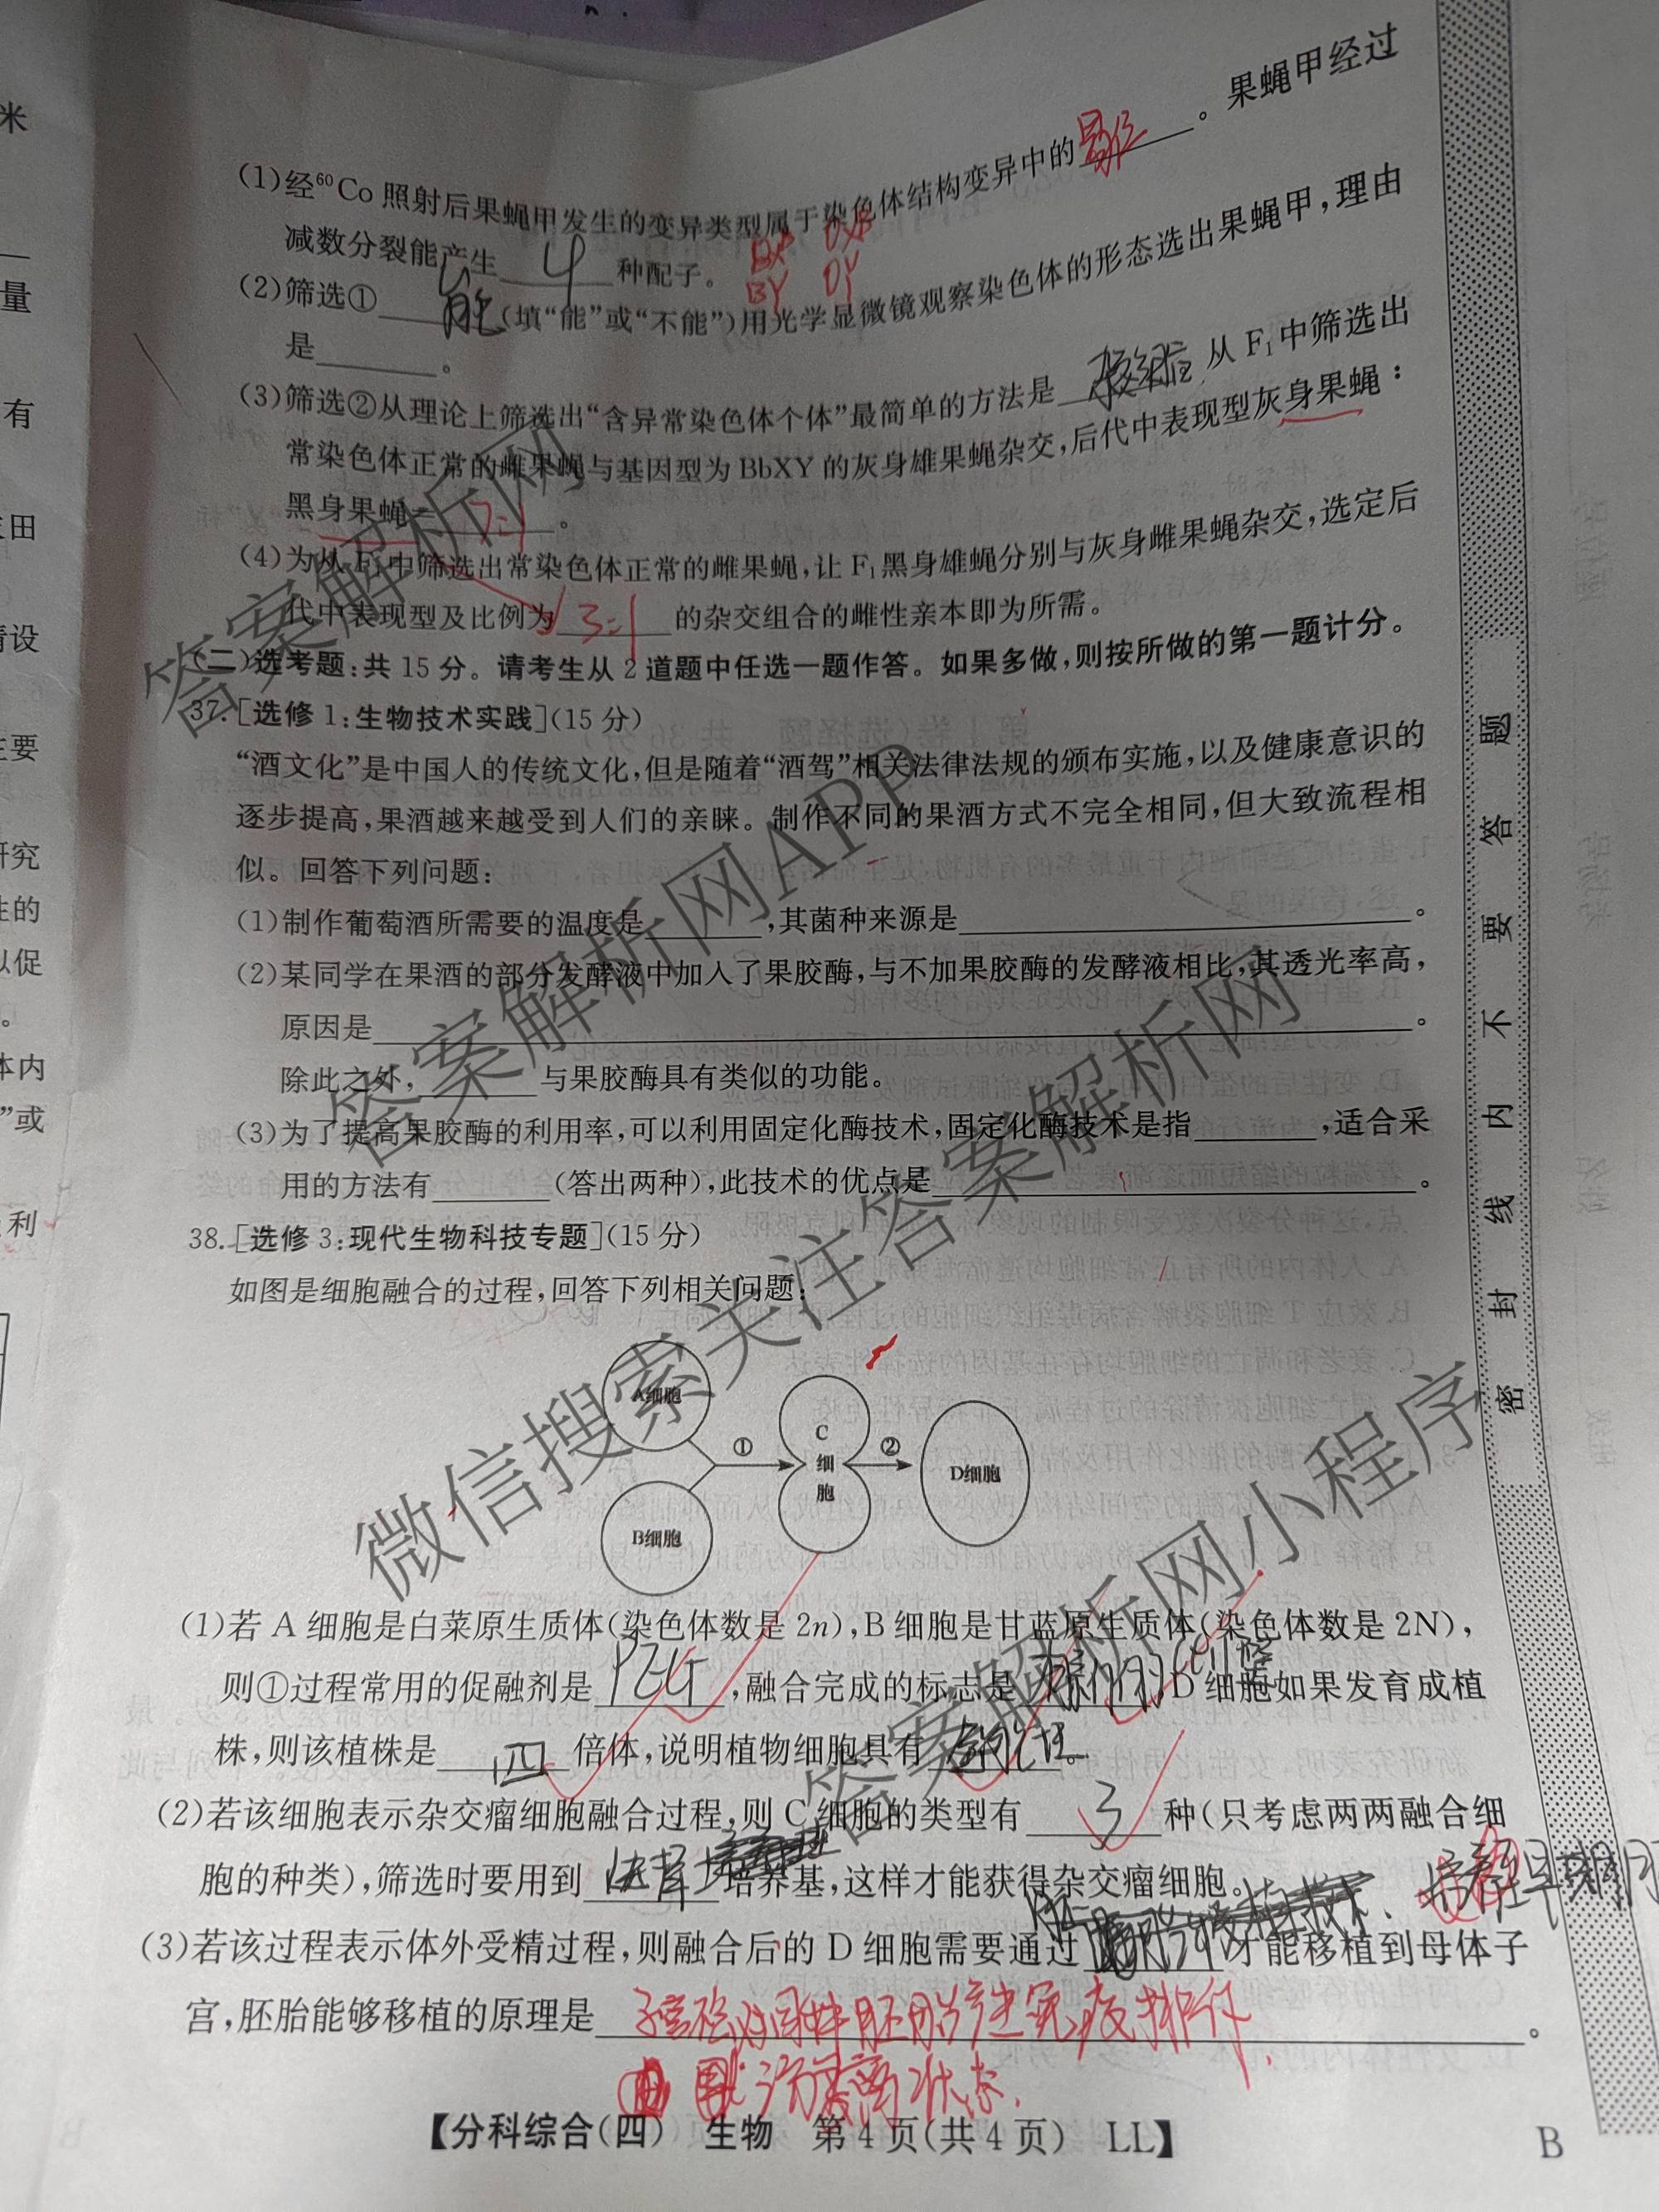 米
量
有
田
设
主要
研究
性的
以促
。
体内
”或
利
(1)经⁶⁰Co照射后果蝇甲发生的变异类型属于染色体结构变异中的易位。果蝇甲经过
减数分裂能产生4种配子。
BX DXB
BY DY
(2)筛选①能(填“能”或“不能”)用光学显微镜观察染色体的形态选出果蝇甲,理由
是。
(3)筛选②从理论上筛选出“含异常染色体个体”最简单的方法是,从F₁中筛选出
常染色体正常的雌果蝇与基因型为BbXY的灰身雄果蝇杂交,后代中表现型灰身果蝇:
黑身果蝇=7:1。
(4)为从F₁中筛选出常染色体正常的雌果蝇,让F₁黑身雄蝇分别与灰身雌果蝇杂交,选定后
代中表现型及比例为3:1的杂交组合的雌性亲本即为所需。
(二)选考题:共15分。请考生从2道题中任选一题作答。如果多做,则按所做的第一题计分。
37.[选修1:生物技术实践](15分)
“酒文化”是中国人的传统文化,但是随着“酒驾”相关法律法规的颁布实施,以及健康意识的
逐步提高,果酒越来越受到人们的亲睐。制作不同的果酒方式不完全相同,但大致流程相
似。回答下列问题:
(1)制作葡萄酒所需要的温度是,其菌种来源是。
(2)某同学在果酒的部分发酵液中加入了果胶酶,与不加果胶酶的发酵液相比,其透光率高,
原因是。
除此之外,与果胶酶具有类似的功能。
(3)为了提高果胶酶的利用率,可以利用固定化酶技术,固定化酶技术是指,适合采
用的方法有(答出两种),此技术的优点是。
38.[选修3:现代生物科技专题](15分)
如图是细胞融合的过程,回答下列相关问题:
A细胞
B细胞
①
C细胞
②
D细胞
(1)若A细胞是白菜原生质体(染色体数是2n),B细胞是甘蓝原生质体(染色体数是2N),
则①过程常用的促融剂是PEG,融合完成的标志是D细胞如果发育成植
株,则该植株是四倍体,说明植物细胞具有。
(2)若该细胞表示杂交瘤细胞融合过程,则C细胞的类型有3种(只考虑两两融合细
胞的种类),筛选时要用到培养基,这样才能获得杂交瘤细胞。
(3)若该过程表示体外受精过程,则融合后的D细胞需要通过才能移植到母体子
宫,胚胎能够移植的原理是子宫不对胚胎产生免疫排斥
游离状态.
【分科综合(四) 生物 第4页(共4页) LL】
B
密 封 线 内 不 要 答 题
答案解析网
答案解析网APP
微信搜索关注答案解析网
答案解析网小程序